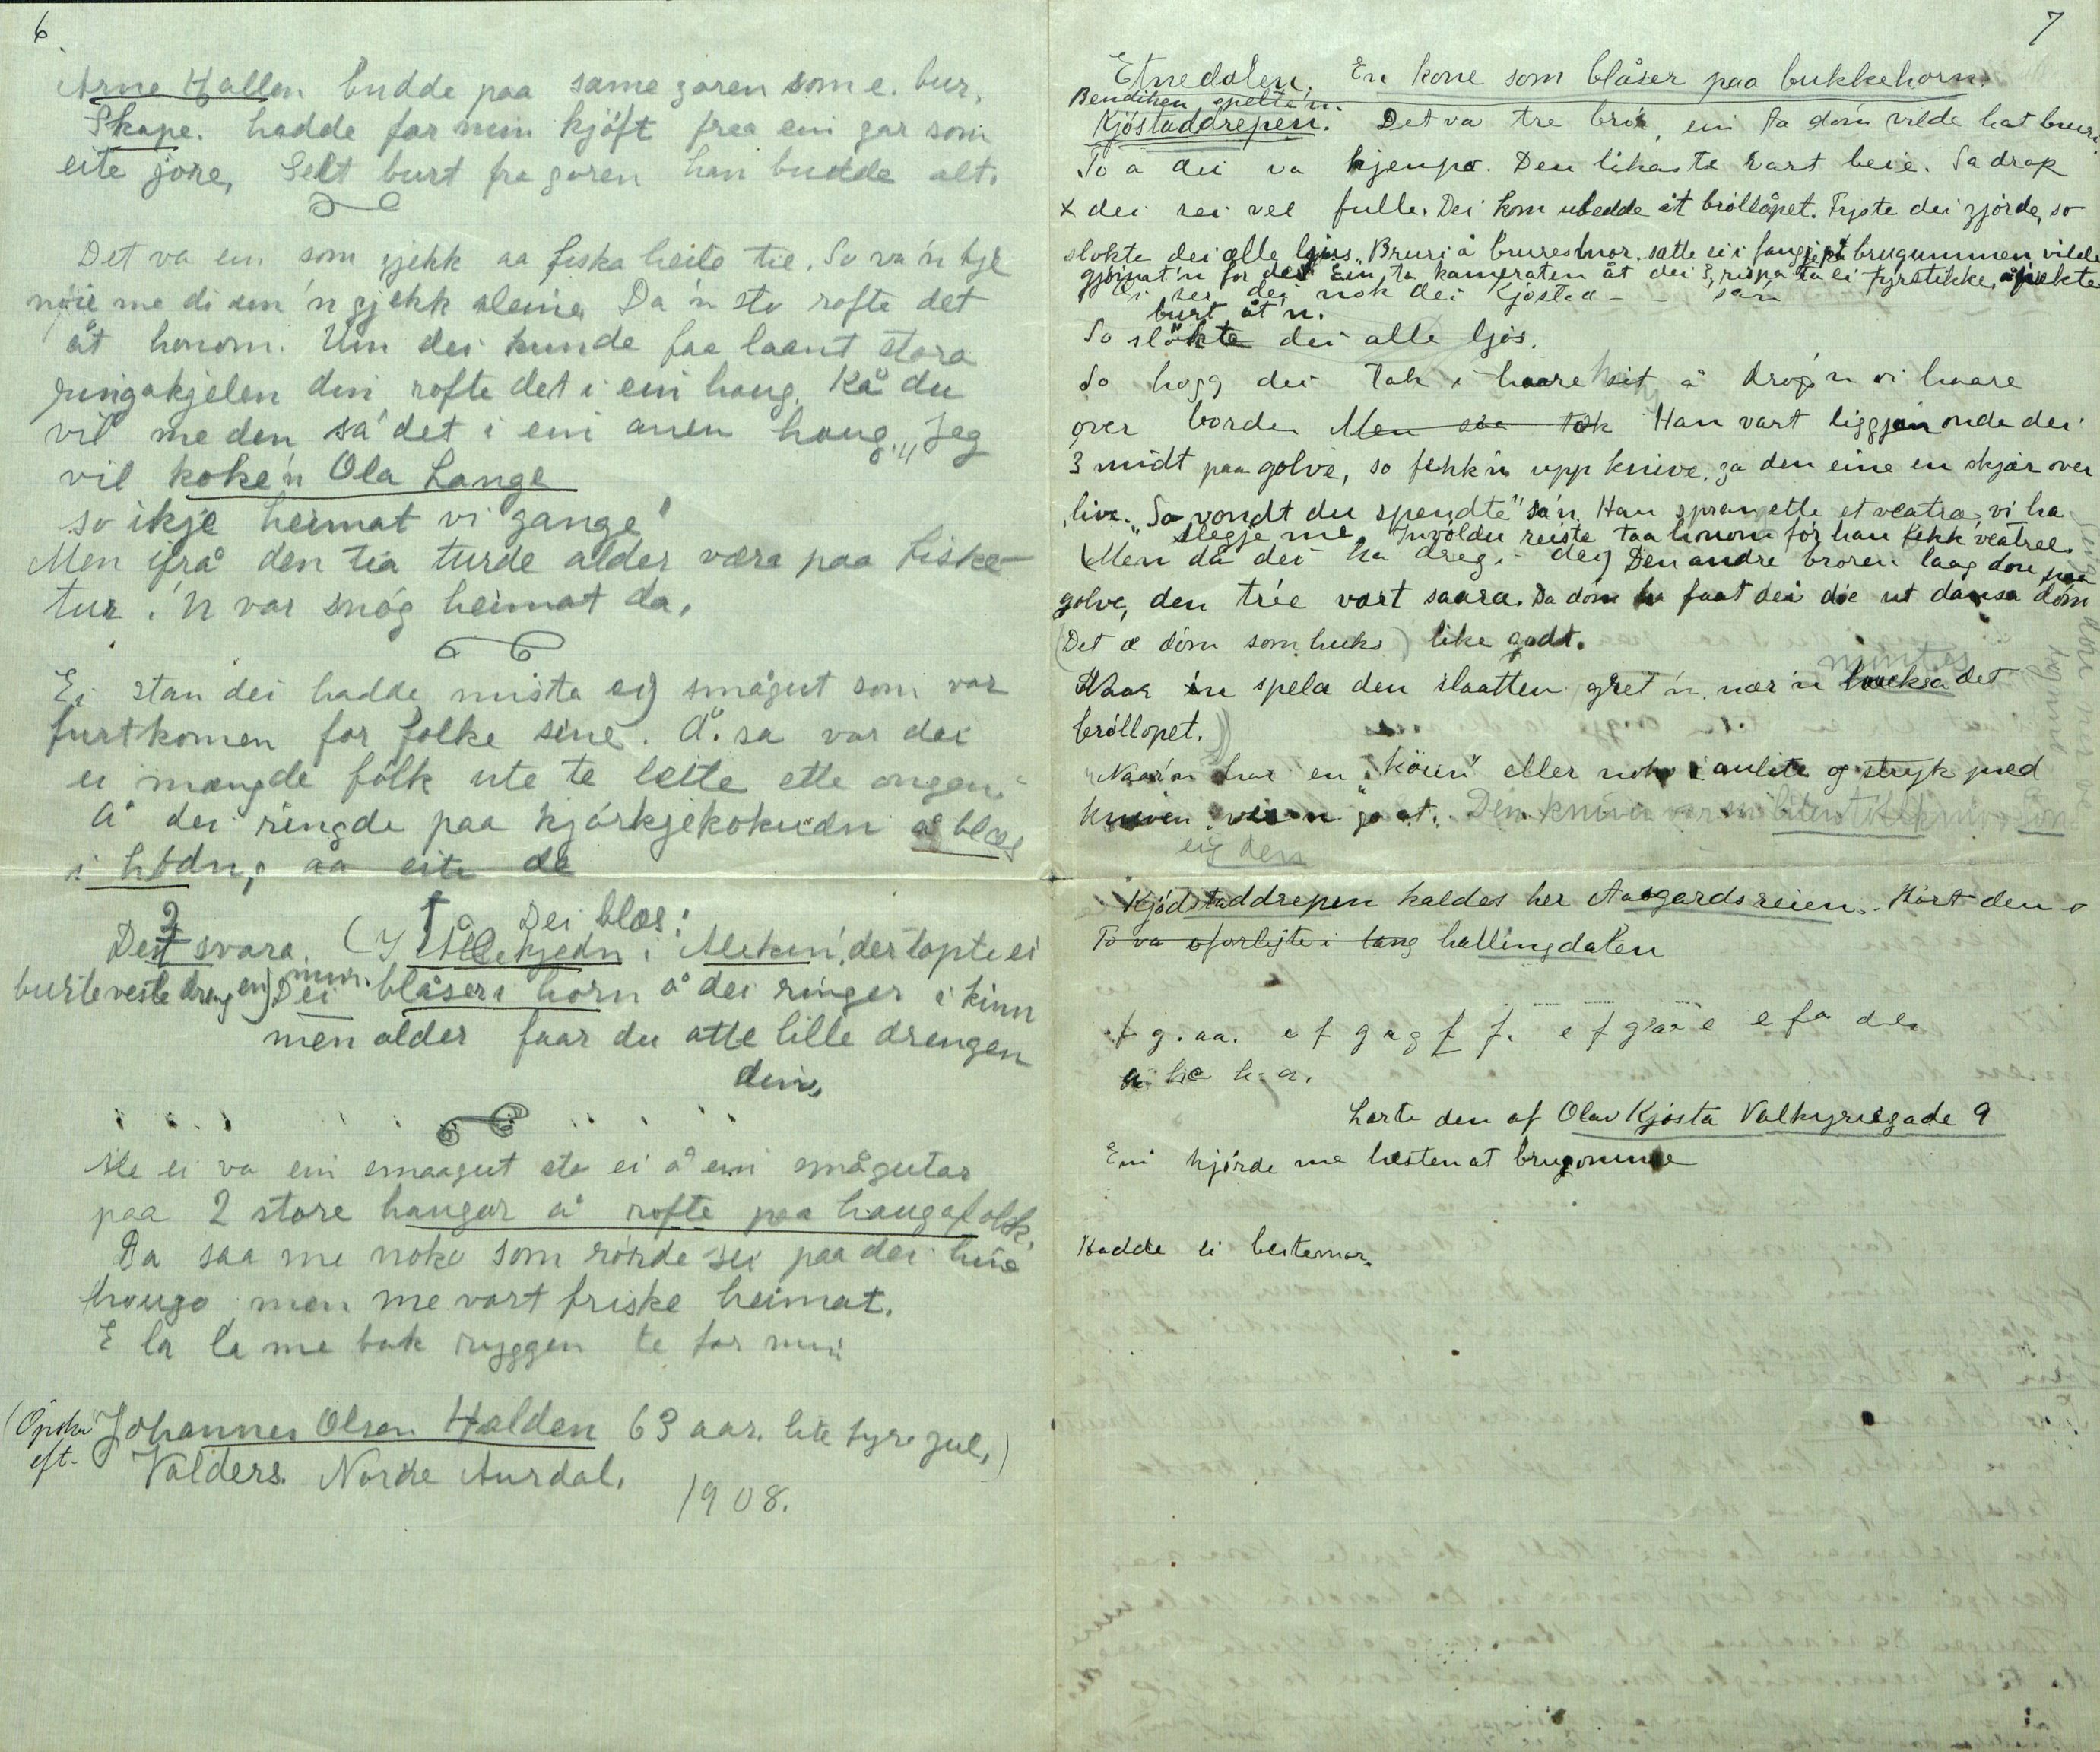 6
Arne Hallen budde paa same garen som e. bur.
Skape. hadde far min kjöft fraa ein gar som
eite jore, Selt burt fra garen han budde alt.
Det va ein som gjekk aa fiska heile tie. So va'n
nöie me di som 'n gjekk aleine Da'n sto rofte det
åt honom. Um dei kunde faa laant stora
ringakjelen din rofte det i ein haug. Kå du
vil me den sa' det i ein anen haug. "Jeg
vil koke'n Ola Lange
so ikje heimat vi gange"
Men ifrå den tia turde alder vera paa fiske-
tur. 'N var snóg heimat da.
Ei stan dei hadde mista eig smågut som var
burtkomen for folke sine. Å. sa var dei
ei mængde fólk ute te leite ette ongen.
Å dei ringde paa kjórkjekokudn å blæs
i hödn, aa eite de
Dei blæs:
Det svara. (I Ålekjedn i Alekin, der tapte ei
burte vesle drengen min.) Dei blåser i horn å dei ringer i kinn
men alder faar du atte lille drengen
din,
Me ei va ein smaagut sto ei å ein smågutar
paa 2 store haugar å rofte paa haugafolk.
Da saa me noko som rörde sei paa dei hine
haugo men me vart friske heimat.
E la la me bak ryggen te far min
(Opskr. eft. Johannes Olsen Halden 63 aar. lite fyre jul,)
Valders. Nordre Aurdal.
1908.
7
Etnedalen. En kone som blåser paa bukkehorn.
Bendiken spelte'n.
Kjöstaddrepen. Det va tre brór, ein ta dóm vilde hat bruri.
To å dei va kjempo. Den likaste vart beie. Sa drak
x dei sei vel fulle. Dei kom ubedde åt bróllåpet. Fyste dei gjórde, so
slokte dei alle ljus. Bruri å bruresbuor satte ei i fangje på brugummen vilde
gjöimat'n for dei Ein ta kameraten åt dei 3, rispa ta ei fyrstikke, å pekte
ser dei nok dei Kjösta - - sa'n
burt åt'n.
So slökte dei alle ljós.
So hogg dei tak i haare sit å dróg'n vi haare
over borde. Men saa tok Han vart liggjan onde dei
3 midt paa golve, so fekk'n upp knive, ga den eine en skjær over
live. "So vondt du spendte" sa'n. Han sprang ette et veatra, vi ha
slegje me Invóldu reiste taa honom för han fekk veatree.
(Men då dei ha dreg. dei) Den andre broren laag dou paa
golve, den trie vart saara. Da dóm ha faat dei die ut dansa dóm
(Det æ dóm som huks) like godt.
Naar 'n spela den slaatten gret 'n, nær 'n mintes hucksa det
bróllopet.
Naar'n har en "köun" eller noko i anlite og stryk med
kniven, veir'n go at. Den kniven var
eig den
Kjödstaddrepen kaldes her Aasgardsreien. Hört den o
To va uforlijte i lang hallingdalen
f g. aa. e f g a g f f. e f g a e e f a d e.
a h c h a.
Lærte den af Olav Kjösta Valkyriegade 9
Ein kjórde me hesten at brugomme
Hadde ei bestemor.